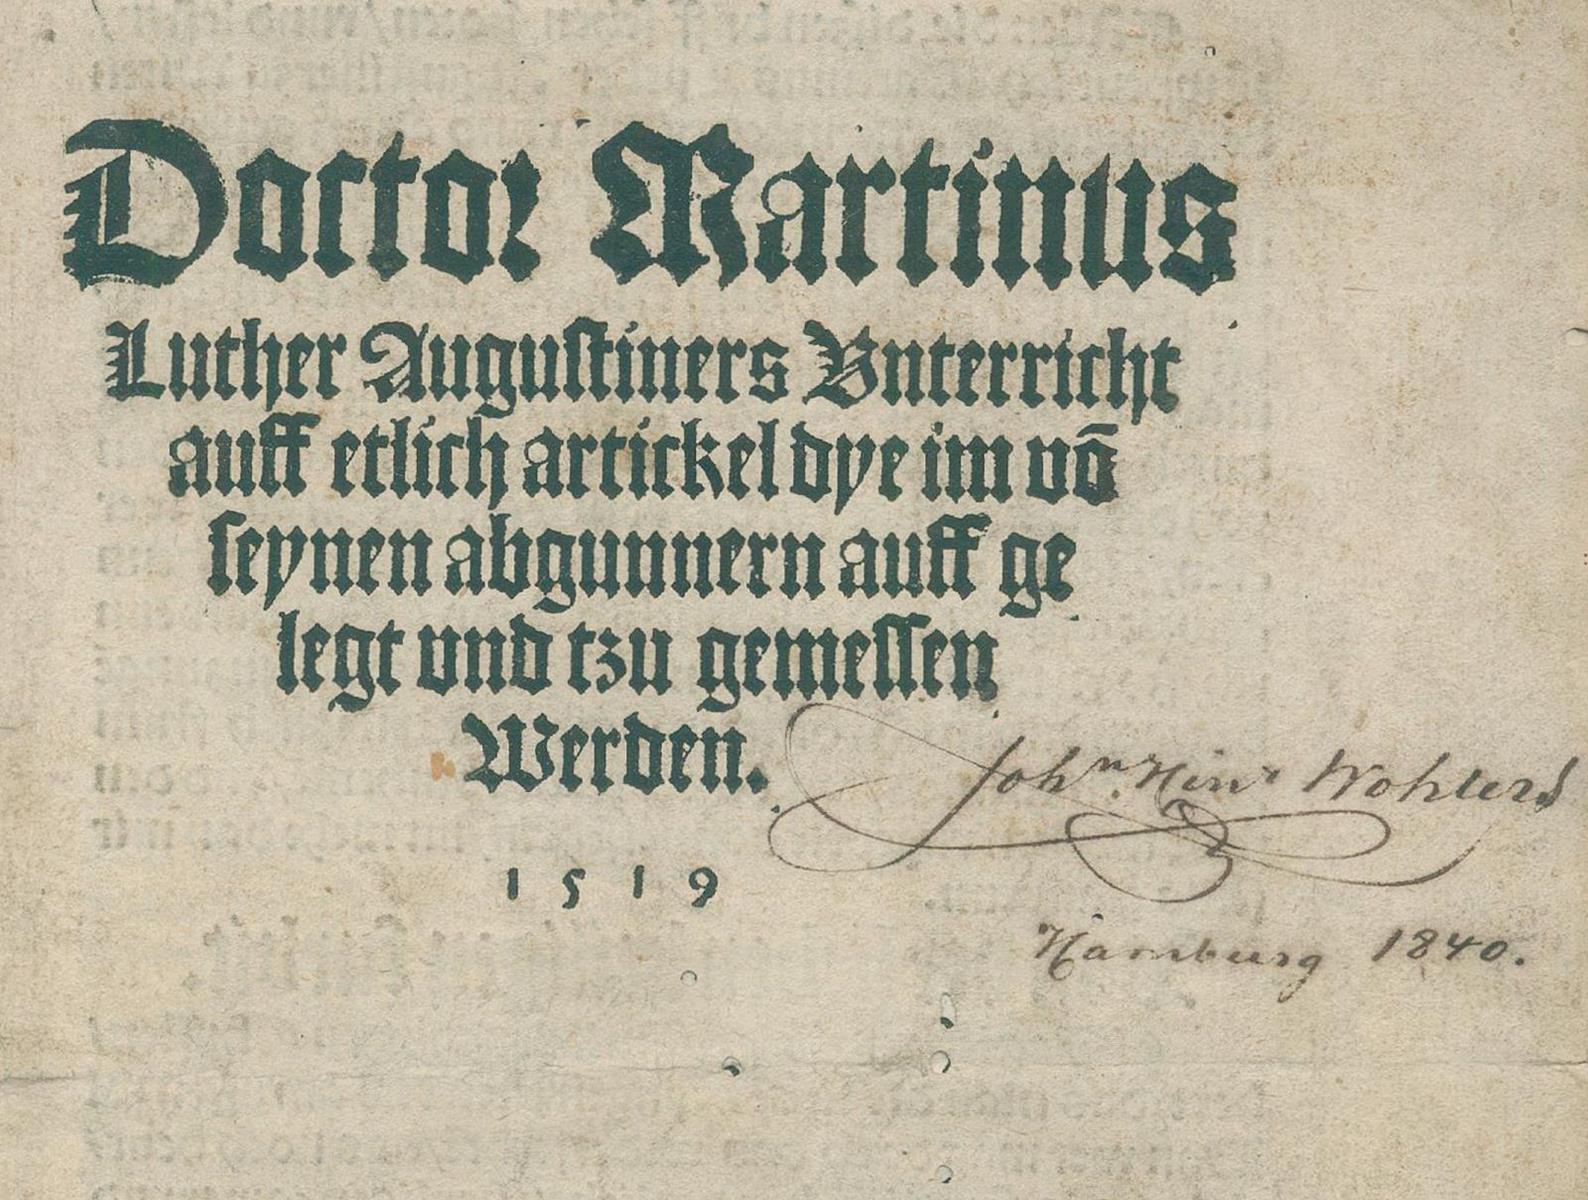 Doctor Martinus
Luther Augustiners Vnterricht
auff etlich artickel dye im vō
seynen abgunnern auff ge
legt vnd tzu gemessen
Werden.
Johⁿ. Hinʳ Wohlers
1519
Hamburg 1840.